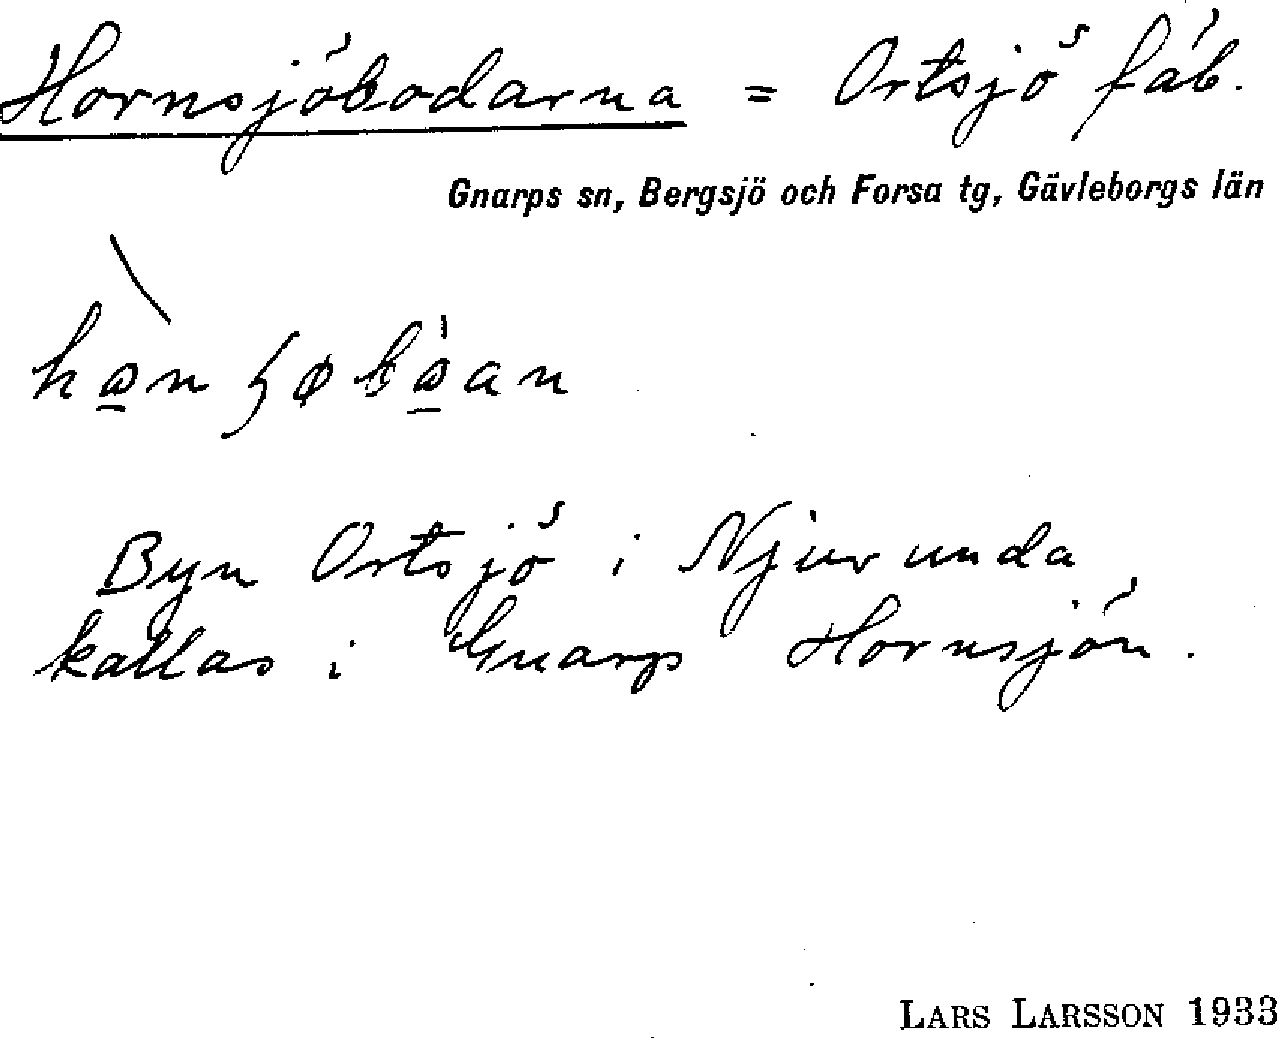 Hornsjöbodarna = Ortsjö fäb.
Gnarps sn, Bergsjö och Forsa tg, Gävleborgs län
Byn Ortsjö i Njurunda
kallas i Gnarp Hornsjön.
LARS LARSSON 1933